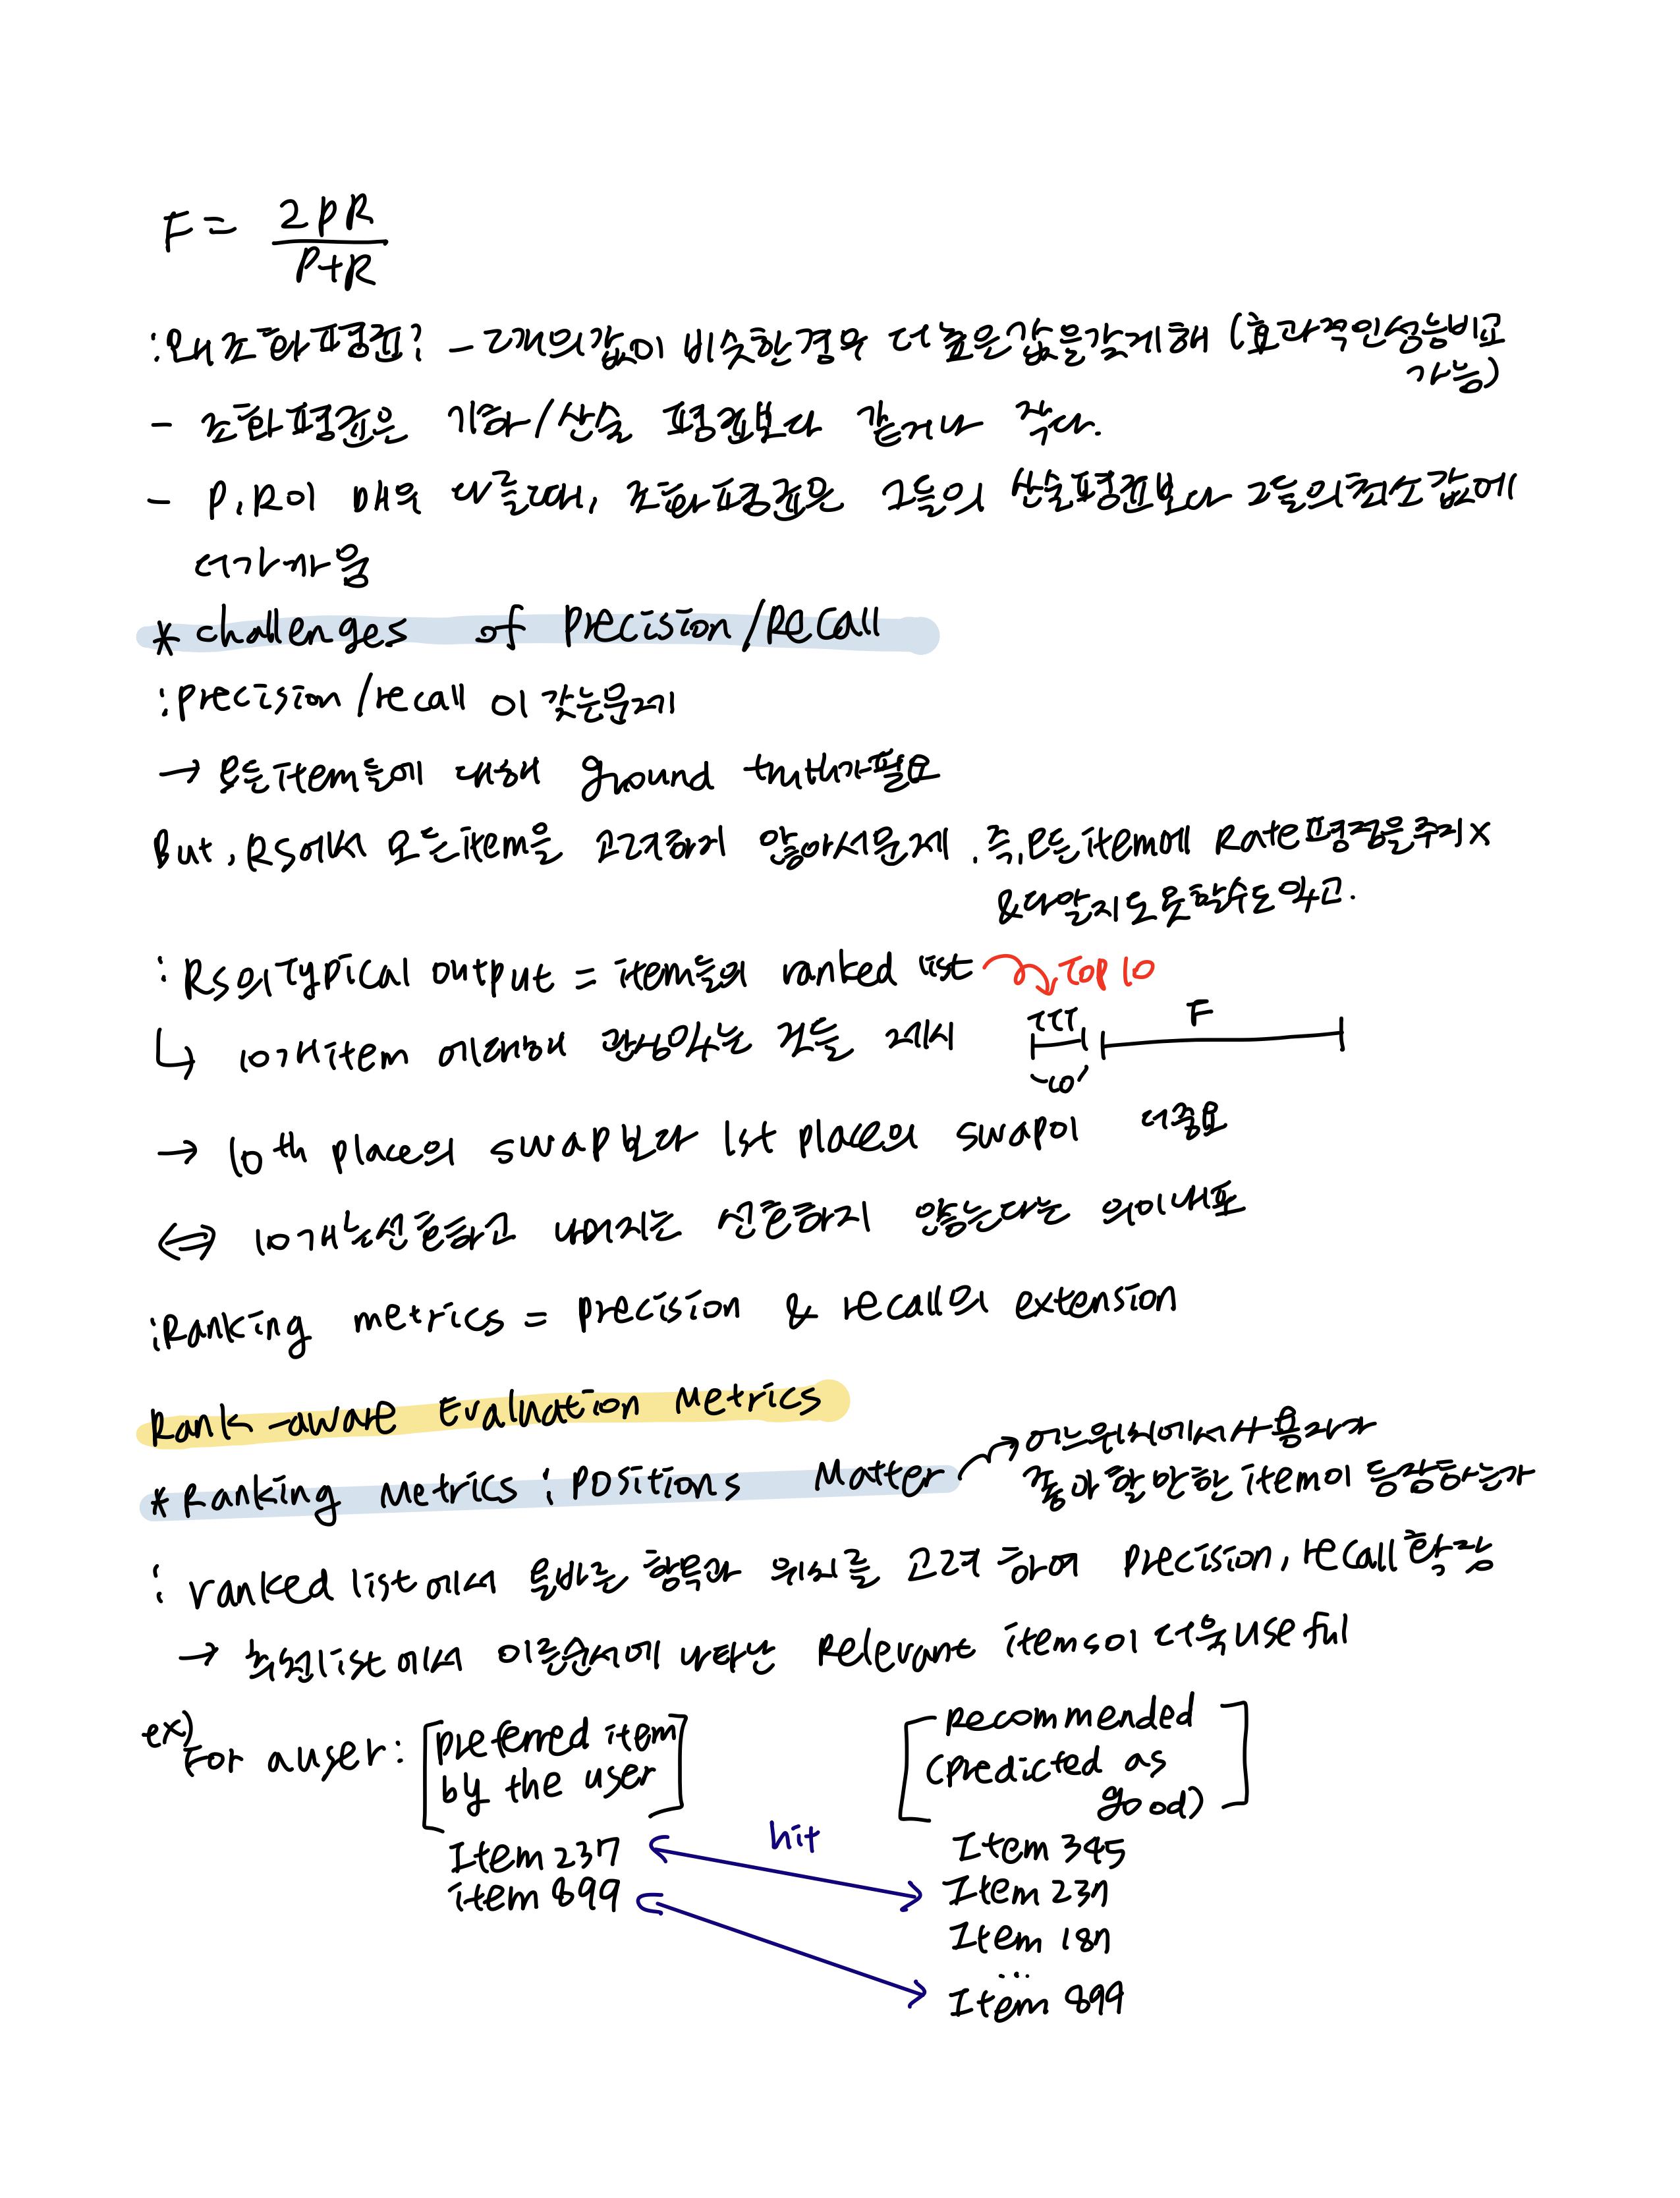 F = 2PR / P+R
: 왜 조화평균? - 2개의 값이 비슷한 경우 더 높은 값을 갖게 해 (효과적인 성능비교
가능)
- 조화평균은 기하/산술 평균보다 같거나 작다.
- P, R이 매우 다를때, 조화평균은 그들의 산술평균보다 그들의 최소값에
더 가까움
* challenges of Precision/Recall
: precision/recall 이 갖는 문제
→ 모든 item들에 대해 ground truth가 필요
But, RS에서 모든 item을 고려하지 않아서 문제. 즉, 모든 item에 Rate 평점을 주지 x
& 다 알지도 못할수도 있고.
: RS의 Typical output = item들의 ranked list Top 10
↳ 10개 item 에 대해 관심있는 것들 제시
TTT F
10
→ 10th place의 swap보다 1st place의 swap이 더 중요
⇔ 10개는 선호하고 나머지는 선호하지 않는다는 의미 내포
: Ranking metrics = precision & recall의 extension
Rank-aware Evaluation Metrics
* Ranking Metrics : Positions Matter → 어느 위치에서 사용자가
좋아할 만한 item이 등장하는가
: ranked list에서 올바른 항목과 위치를 고려하여 precision, recall 확장
→ 추천 list에서 이른 순서에 나타난 Relevant items이 더욱 useful
ex)
For a user : [preferred item
by the user]
[recommended
(predicted as
good)]
Item 237
item 899
hit
Item 345
Item 237
Item 187
...
Item 899